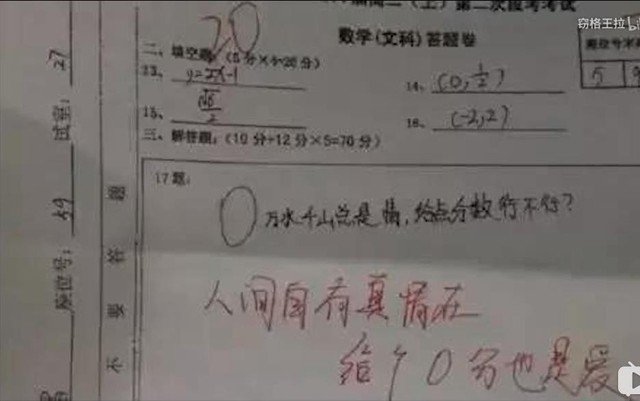 窃格王拉
（上）第二次段考考试
数学(文科)答题卷
20
二、填空题：(5分×4=20分)
13、 y=2x-1
14、 (0,½)
15、
16、 (-2,2)
三、解答题：(10分+12分×5=70分)
17题：
0 万水千山总是情,给点分数行不行?
人间自有真情在
给个0分也是爱
试室：27
座位号：59
不要答题
5